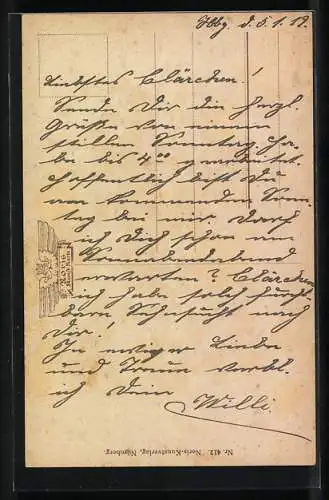 Hbg. d. 5.1.19.
Liebstes Clärchen!
Sende Dir die herzl.
Grüße von einem
stillen Sonntag, ha-
be bis 4⁰⁰ gearbeitet.
Hoffentlich bist Du
am kommenden Sonn-
tag bei mir. Darf
ich Dich schon am
Sonnabendabend
erwarten? Clärchen,
ich habe solch furcht-
bare Sehnsucht nach
Dir!
In ewiger Liebe
und Treue verbl.
ich Dein
Willi.
NORIS
Nr. 412. Noris-Kunstverlag, Nürnberg.